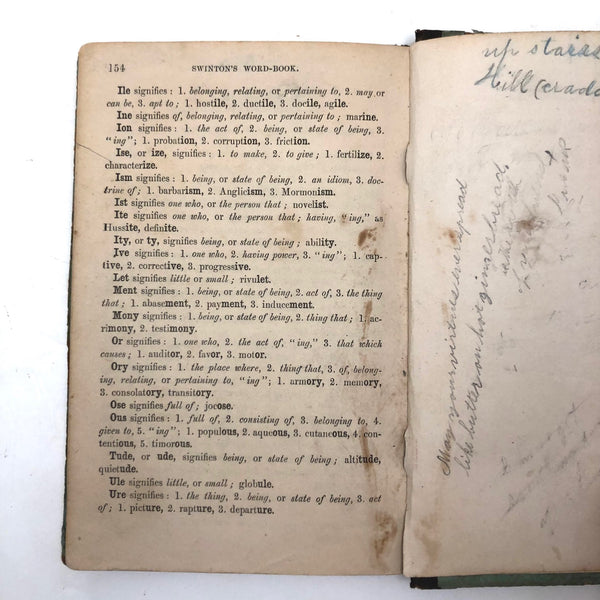 154 SWINTON'S WORD-BOOK.
Ile signifies: 1. belonging, relating, or pertaining to, 2. may or
can be, 3. apt to; 1. hostile, 2. ductile, 3. docile, agile.
Ine signifies of, belonging, relating, or pertaining to; marine.
Ion signifies: 1. the act of, 2. being, or state of being, 3.
"ing"; 1. probation, 2. corruption, 3. friction.
Ise, or ize, signifies: 1. to make, 2. to give; 1. fertilize, 2.
characterize.
Ism signifies: 1. being, or state of being, 2. an idiom, 3. doc-
trine of; 1. barbarism, 2. Anglicism, 3. Mormonism.
Ist signifies one who, or the person that; novelist.
Ite signifies one who, or the person that; having, "ing," as
Hussite, definite.
Ity, or ty, signifies being, or state of being; ability.
Ive signifies: 1. one who, 2. having power, 3. "ing"; 1. cap-
tive, 2. corrective, 3. progressive.
Let signifies little or small; rivulet.
Ment signifies: 1. being, or state of being, 2. act of, 3. the thing
that; 1. abasement, 2. payment, 3. inducement.
Mony signifies: 1. being, or state of being, 2. thing that; 1. ac-
rimony, 2. testimony.
Or signifies: 1. one who, 2. the act of, "ing," 3. that which
causes; 1. auditor, 2. favor, 3. motor.
Ory signifies: 1. the place where, 2. thing that, 3. of, belong-
ing, relating, or pertaining to, "ing"; 1. armory, 2. memory,
3. consolatory, transitory.
Ose signifies full of; jocose.
Ous signifies: 1. full of, 2. consisting of, 3. belonging to, 4.
given to, 5. "ing"; 1. populous, 2. aqueous, 3. cutaneous, 4. con-
tentious, 5. timorous.
Tude, or ude, signifies being, or state of being; altitude,
quietude.
Ule signifies little, or small; globule.
Ure signifies: 1. the thing, 2. being, or state of being, 3. act
of; 1. picture, 2. rapture, 3. departure.
up stairs
Hill
May your virtues ever spread
like butter on hot gingerbread